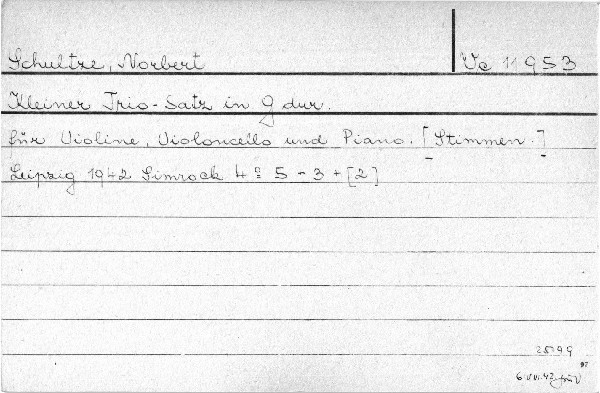 Schultze, Norbert Vc 11953
Kleiner Trio-Satz in G dur.
für Violine, Violoncello und Piano. [Stimmen.]
Leipzig 1942 Simrock 4° 5 - 3 + [2]
97